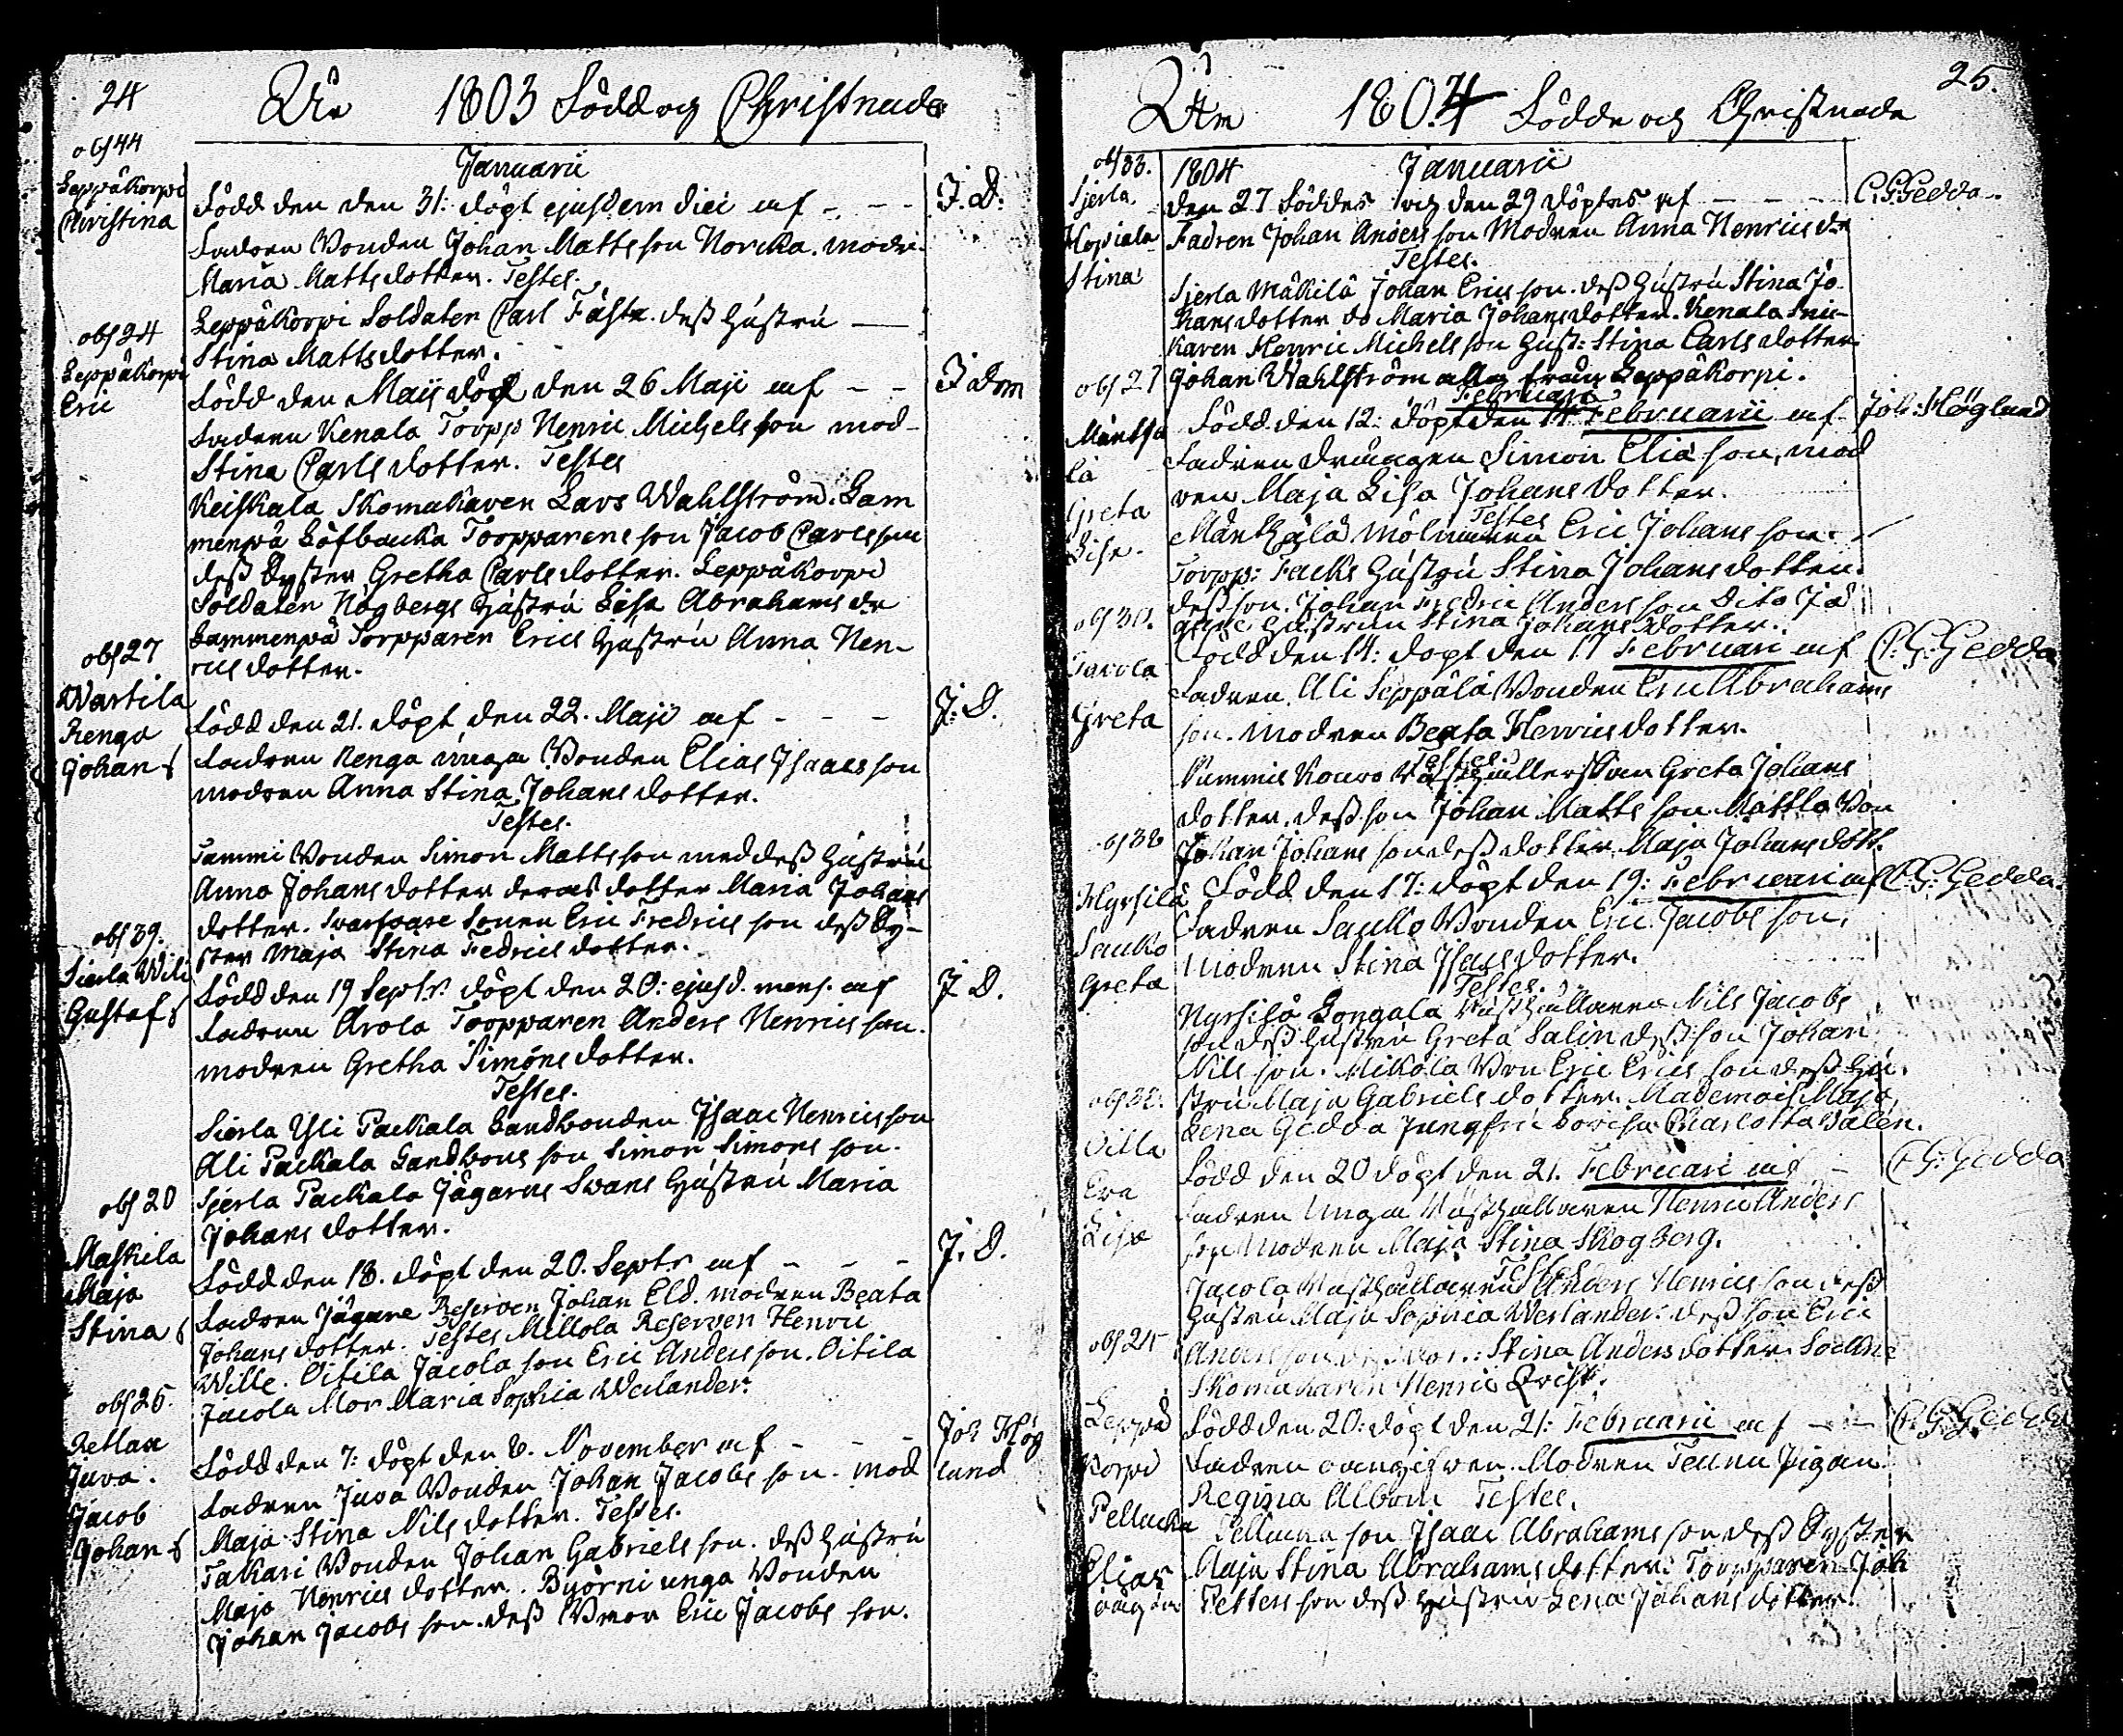 24
1803 Född och Christnade
obs 44
Januarii
Leppäkorpi
Christina
Född den den 31: döpt ejusdem diei af - - - J. D.
Fadren Bonden Johan Mattsson Norcka. modr.
Maria Mattsdotter. Testes.
Leppäkorpi Soldaten Carl Fäste. deß Hustru
Stina Mattsdotter.
obs 24
Leppäkorpi
Eric
Född den Maij döpt den 26 Maji af - - J Dm
Fadren Kenala Torpp Henric Michelsson mod-
Stina Carlsdotter. Testes
Keiskala Skomakaren Lars Wahlström. Lam
menpä Löfbacka Torpparens son Jacob Carlsson
deß Syster Gretha Carlsdotter. Leppäkorpi
Soldaten Högbergs Hustru Lisa Abrahams dr
Lammenpä Torpparen Erics Hustru Anna Hen-
ricsdotter.
obs 27
Wartila
Renga
Johan
Född den 21. döpt den 22. Maji af - - - J. D.
Fadren Renga unga Bonden Elias Isaacsson
modren Anna Stina Johansdotter.
Testes.
Tammi Bonden Simon Mattsson med deß Hustru
Anna Johansdotter deras dotter Maria Johans
dotter. sonen Eric Fredricsson deß Sy-
ster Maja Stina Fredricsdotter.
obs 39.
Sierla Uli
Gustaf
Född den 19 Septr. döpt den 20: ejusd. mens. af J D.
Fadren Arola Torpparen Anders Henricsson.
modren Gretha Simonsdotter.
Testes.
Sierla Yli Packala Landbonden Isaac Henricsson
Ali Packala Landbons son Simon Simonsson.
Sjerla Packala Jägarens Svans Hustru Maria
Johansdotter.
obs 20
Maskila
Maja
Stina
Född den 18. döpt den 20. Septr af - - - J. D.
Fadren Jägare Reserven Johan Eld. modren Beata
Johansdotter. Testes Millola Reserven Henric
Wille. Oitila Jacola son Eric Andersson. Oitila
Jacola Mor Maria Sophia Weilander.
obs 25.
Retlax
Juva.
Jacob
Johan
Född den 7: döpt den 8. November af - - - Joh Hög
lund
Fadren Juva Bonden Johan Jacobsson. mod
Maja Stina Nilsdotter. Testes.
Takari Bonden Johan Gabrielsson. deß Hustru
Maja Henricsdotter. Byörni unga Bonden
Johan Jacobsson. deß Bror Eric Jacobsson.
25.
1804 Födde och Christnade
obs 33.
Sjerla
Hopiala
Stina
1804 Januarii
den 27 Föddes och den 29 döptes af - - - C. G. Gedda.
Fadren Johan Andersson Modren Anna Henrics dr
Testes.
Sjerla Mäkilä Johan Ericsson. deß Hustru Stina Jo
hansdotter do Maria Johansdotter. Kenala Snic-
karen Henric Michelsson Hust: Stina Carlsdotter
Johan Wahlström alla från Leppäkorpi.
obs 27
Februari
Mäntsä
lä
Greta
Lisa.
Född den 12: döpt den 14 Februarii af Joh: Höglund
Fadren drängen Simon Eliasson, mod
ren Maja Lisa Johansdotter.
Testes
Mäntsälä Eric Johansson.
Torpp: Facks Hustru Stina Johansdotter.
deß son. Johan Fredric Andersson Dito Jä
Hustrun Stina Johansdotter.
obs 30.
Greta
Född den 14: döpt den 17 Februari af C: G: Gedda
Fadren. Ali Seppälä Bonden Eric Abrahams
son. Modren Beata Henricsdotter.
Testes.
Nummis Kouvo Rusthållerskan Greta Johans
dotter, deß son Johan Mattsson Mattla Bon
Johan Johansson deß dotter Maja Johansdott.
obs 32
Hyrsilä
Sauko
Greta
Född den 17: döpt den 19: Februari af C. G: Gedda.
Fadren Saukko Bonden Eric Jacobsson,
Modren Stina Isacsdotter.
Testes.
Hyrsilä Rusthållaren Nils Jacobs
son deß Hustru Greta Salin deß son Johan
Nilsson. Mikola Bon Eric Ericsson deß Hu
stru Maja Gabrielsdotter. Mademois Maja
Lena Gedda Jungfru Lovisa Charlotta Walen.
obs 32.
Oilla
Eva
Lisa
Född den 20 döpt den 21. Februari af - C. G: Gedda
Fadren Unga Rusthållaren Henric Anders
son Modren Maja Stina Skogberg.
Testes
Jacola Rusthållaren Anders Henricsson deß
Hustru Maja Sophia Weilander. deß son Eric
Andersson Stina Andersdotter. Sockne
Skomakaren Henric Qvist.
obs 25
Leppä
korpi
Pellacka
Elias
Född den 20: döpt den 21: Februarii af - - C. G: Gedda
Fadren oangifven. Modren Pigan
Regina Albom Testes.
Pellacka son Isaac Abrahamsson deß Syster
Maja Stina Abrahamsdotter: Torpparen Joh
Pettersson deß Hustru Lena Johansdotter.